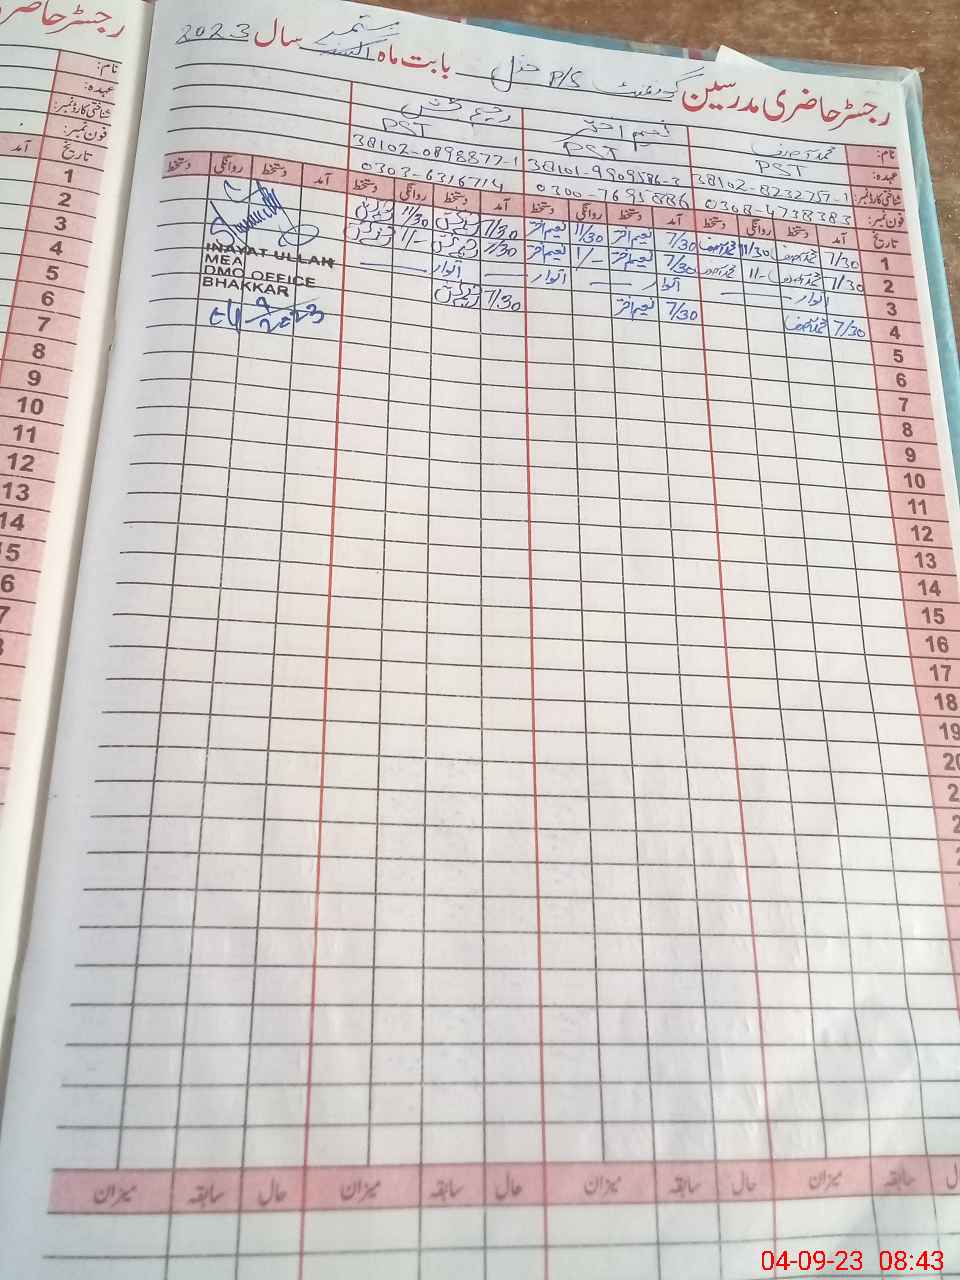 رجسٹر حاضری مدرسین گورنمنٹ P/S بابت ماہ ستمبر سال 2023
نام:
نسیم اختر
عہدہ:
PST
PST
PST
شناختی کارڈ نمبر:
38102-8232757-1
38101-9909586-3
38102-0898877-1
فون نمبر:
0308-4738383
0300-7695886
0303-6316714
تاریخ آمد دستخط روانگی دستخط آمد دستخط روانگی دستخط آمد دستخط روانگی دستخط آمد دستخط روانگی دستخط
1 7/30 11/30 7/30 نسیم اختر 11/30 نسیم اختر 7/30 11/30
2 7/30 11/- 7/30 نسیم اختر 11/- نسیم اختر 7/30 11/-
3 اتوار اتوار اتوار اتوار
4 7/30 7/30 نسیم اختر 7/30
5
6
7
8
9
10
11
12
13
14
15
16
17
18
19
20
2
2
INAYAT ULLAH
MEA
DMO OFFICE
BHAKKAR
04-9-2023
حال سابقہ میزان حال سابقہ میزان حال سابقہ میزان حال سابقہ میزان
رجسٹر حاضری
نام:
عہدہ:
شناختی کارڈ نمبر:
فون نمبر:
تاریخ آمد
1
2
3
4
5
6
7
8
9
10
11
12
13
14
15
6
7
04-09-23 08:43